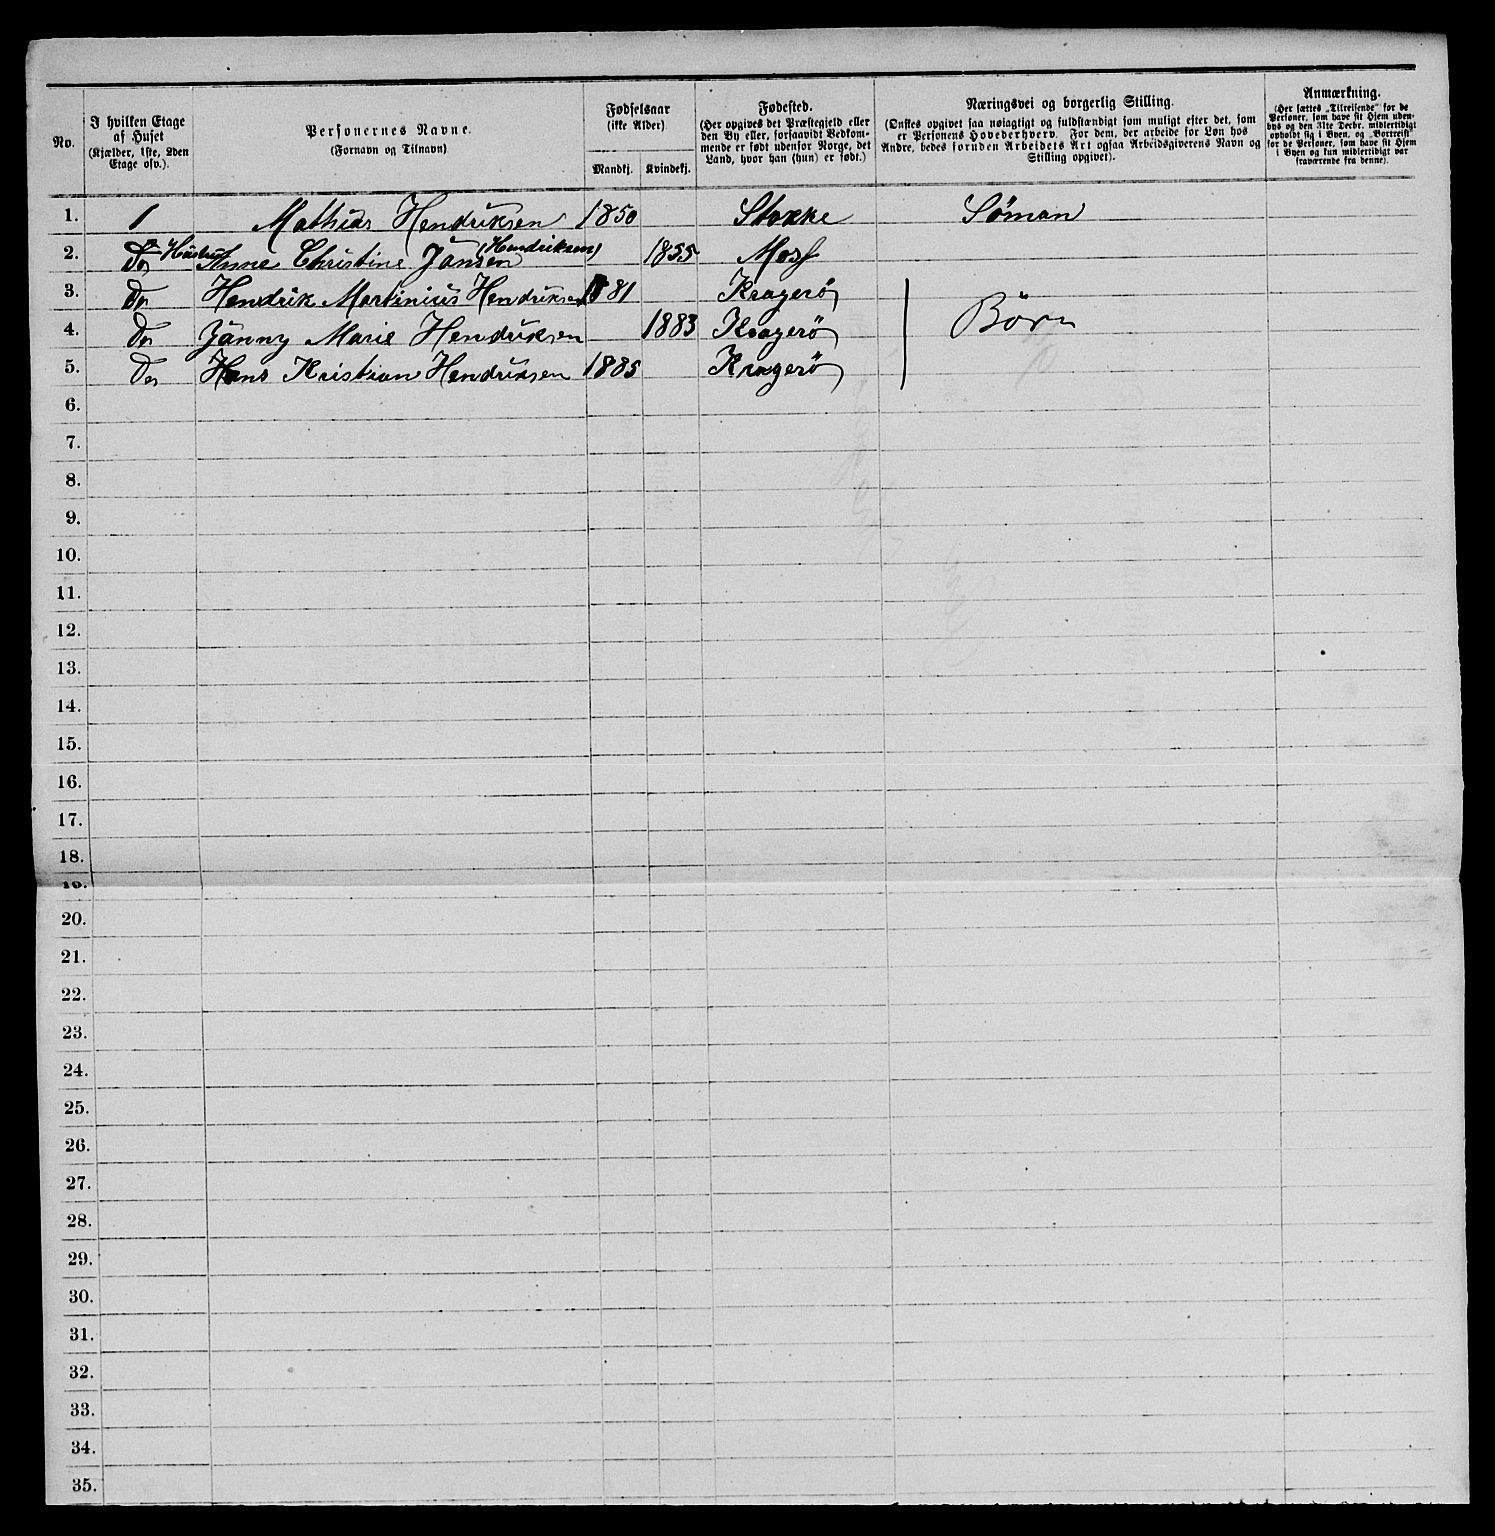 No.
I hvilken Etage af Huset (Kjælder, 1ste, 2den Etage osv.).
Personernes Navne. (Fornavn og Tilnavn)
Fødselsaar (ikke Alder)
Mandkj. Kvindekj.
Fødested. (Her opgives det Præstegjeld eller den By eller, forsaavidt Vedkommende er født udenfor Norge, det Land, hvor han (hun) er født.)
Næringsvei og borgerlig Stilling. (Ønskes opgivet saa nøiagtigt og fuldstændigt som muligt efter det, som er Personens Hovederhverv. For dem, der arbeide for Løn hos Andre, bedes foruden Arbeidets Art ogsaa Arbeidsgiverens Navn og Stilling opgivet).
Anmærkning. (Her sættes „Tilreisende“ for de Personer, som have sit Hjem udenbys og den 31te Decbr. midlertidigt opholdt sig i Byen, og „Bortreist“ for de Personer, som have sit Hjem i Byen og kun midlertidigt var fraværende fra denne).
1. 1 Mathias Hendriksen 1850 Stokke Söman
2. Do Hustru Anne Christine Jansen (Hendriksen) 1855 Moss
3. Do Hendrik Martinius Hendriksen 1881 Kragerö
4. Do Jänny Marie Hendriksen 1883 Kragerö Börn
5. Do Hans Kristian Hendriksen 1885 Kragerö
6.
7.
8.
9.
10.
11.
12.
13.
14.
15.
16.
17.
18.
19.
20.
21.
22.
23.
24.
25.
26.
27.
28.
29.
30.
31.
32.
33.
34.
35.